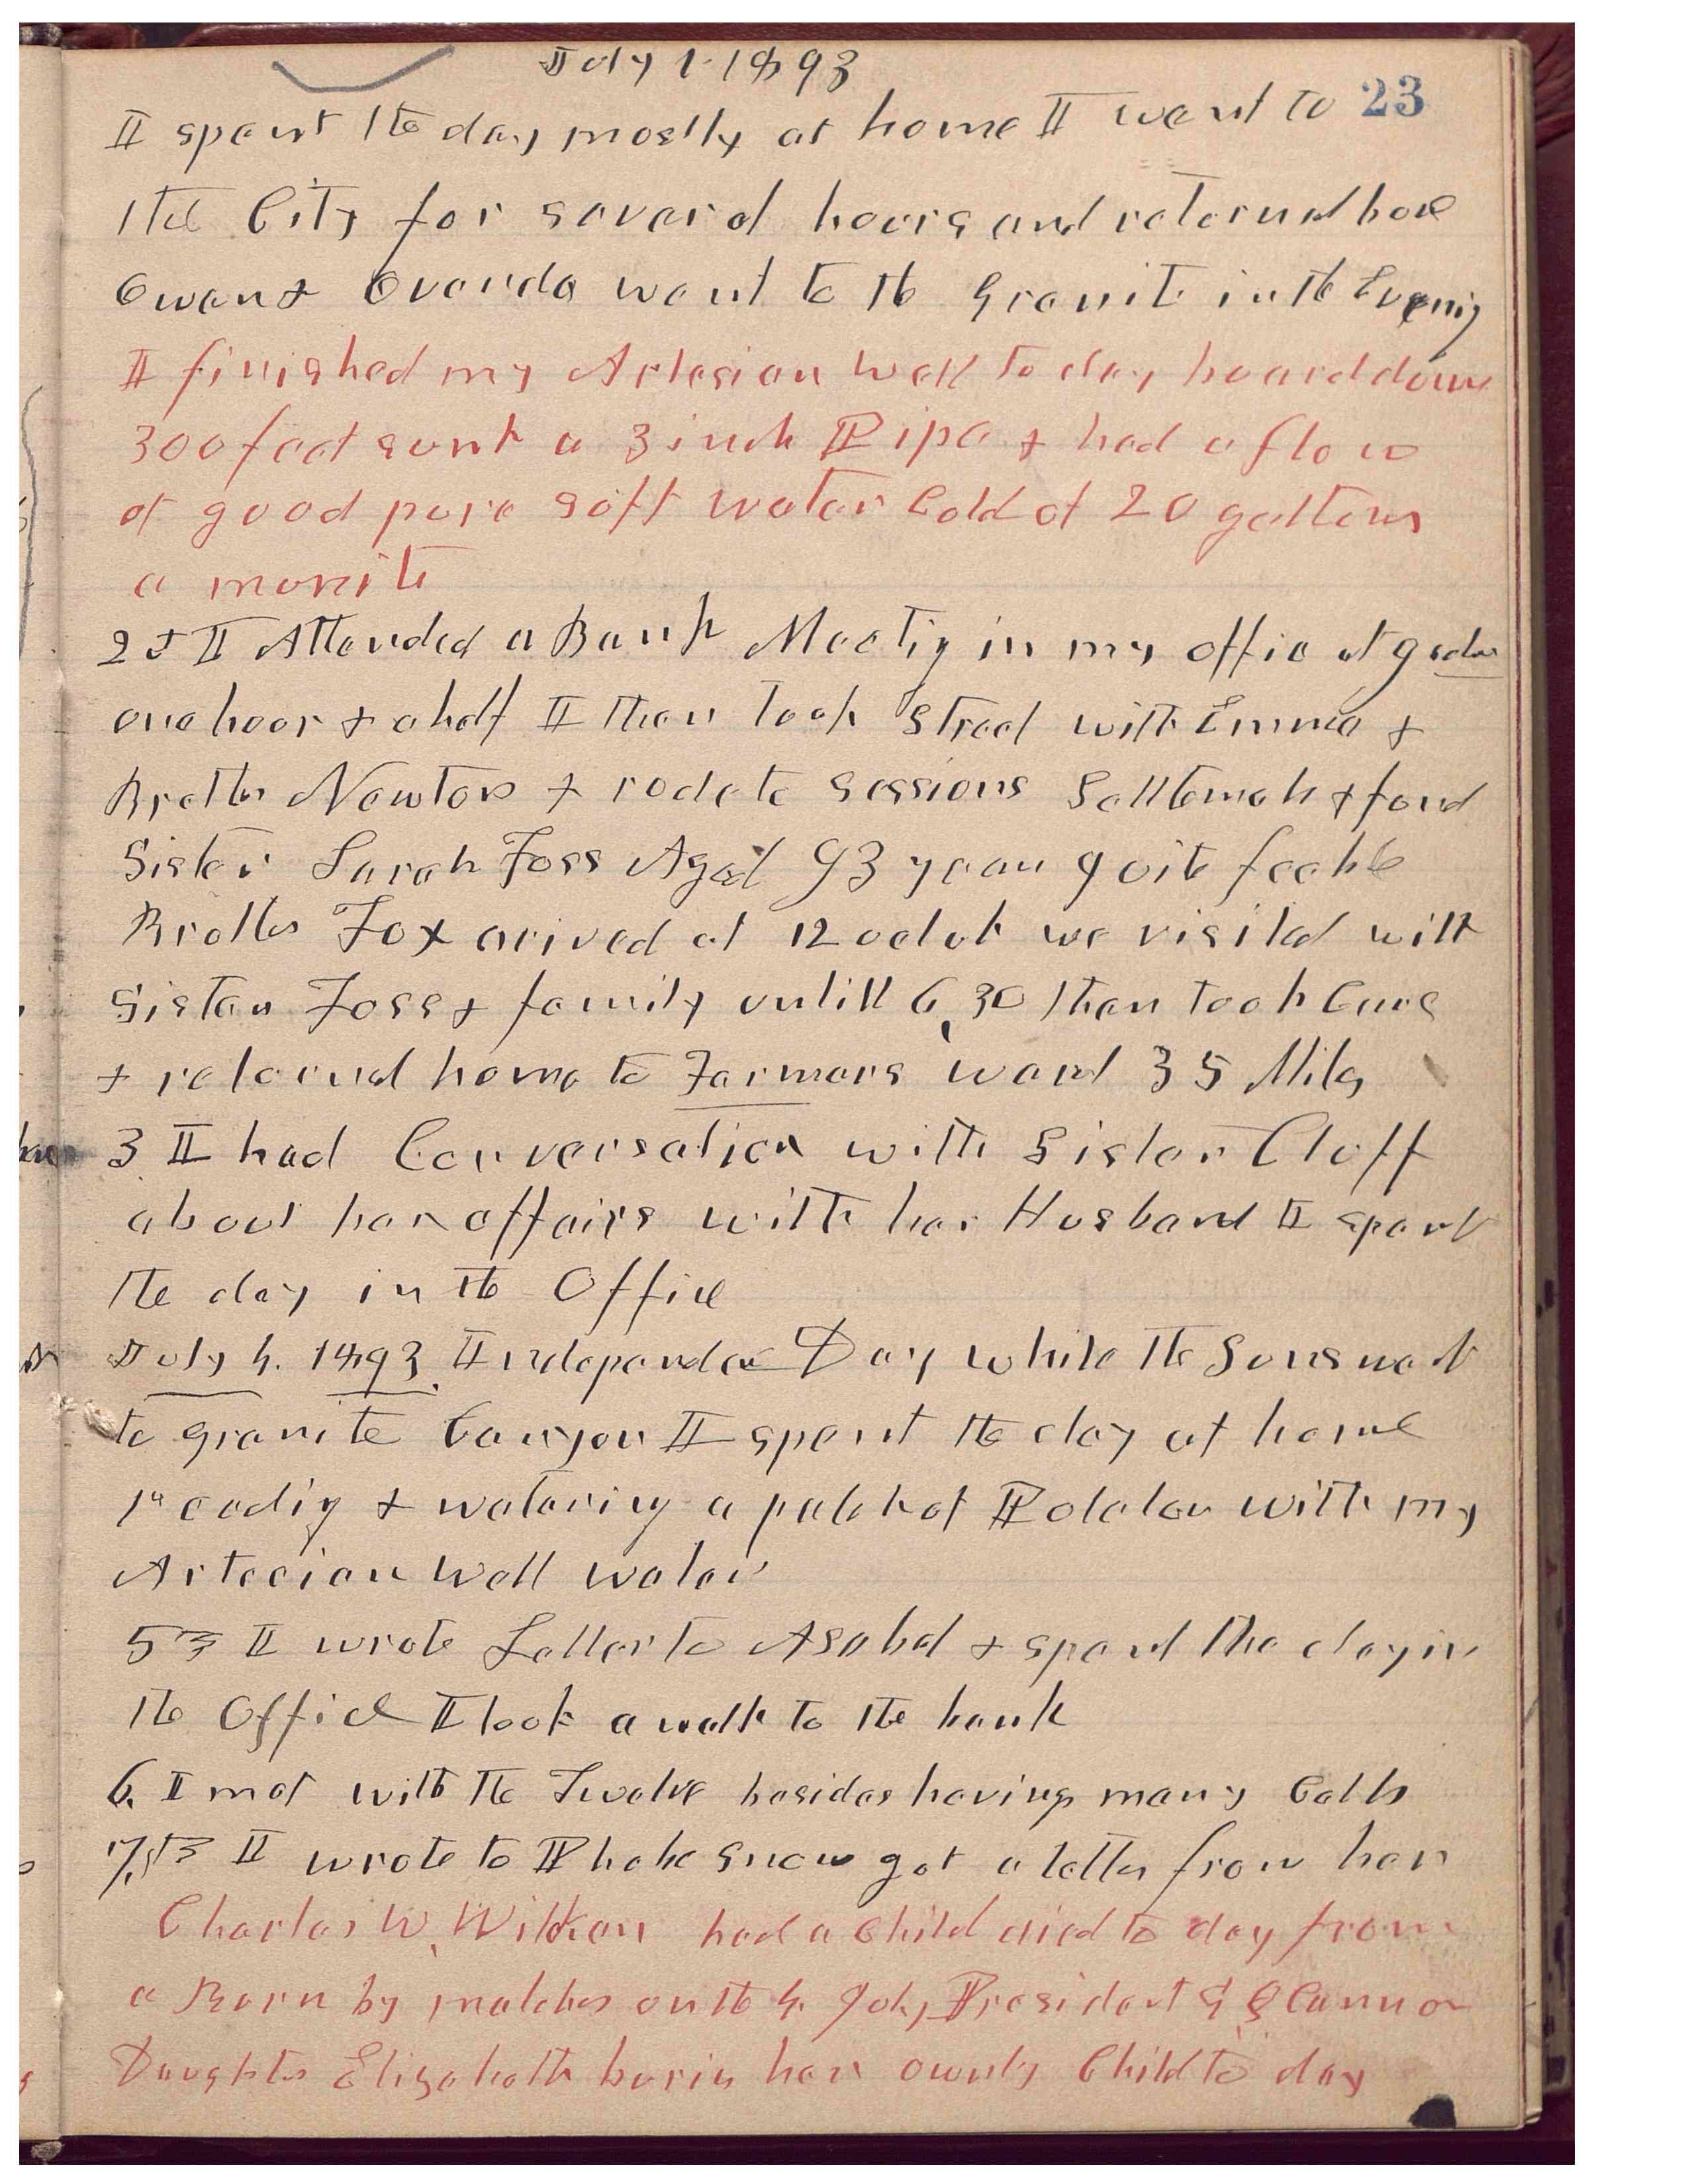 July 1. 1893
23
I spent the day mostly at home I went to
the City for several hours and returnd home
Owen & Ovando went to the Granite in the Evening
I finished my Artesian well to day board down
300 feet sunk a 3 inch Pipe & had a flow
of good pure soft water Cold of 20 gallons
a munite
2d I Attended a Bank Meeting in my office at
one hour & a half I then took Street with Emma &
Brother Newton & rode to Sessions Settlemet & found
Sister Sarah Foss Aged 93 years quite feeble
Brother Fox arived at 12 oclok we visited with
Sister Foss & family untill 6,30 then took Cars
& returnd home to Farmers ward 35 Miles
3 I had Conversation with Sister Cluff
about her affairs with her Husband I spent
the day in the Office
July 4. 1893. Independance Day while the Sons went
to granite Canyon I spent the day at home
reading & watering a patch of Potatoes with my
Artecian Well water
5th I wrote Letter to Asahel & spent the day in
the Office I took a walk to the bank
6. I met with the Twelve besides having many Calls
7th I wrote to Phebe Snow got a letter from her
Charles W. Wilken had a child died to day from
a Burn by matches on the 4. July President G Q Cannon
Daughter Elizabeth buried her ownly Child to day